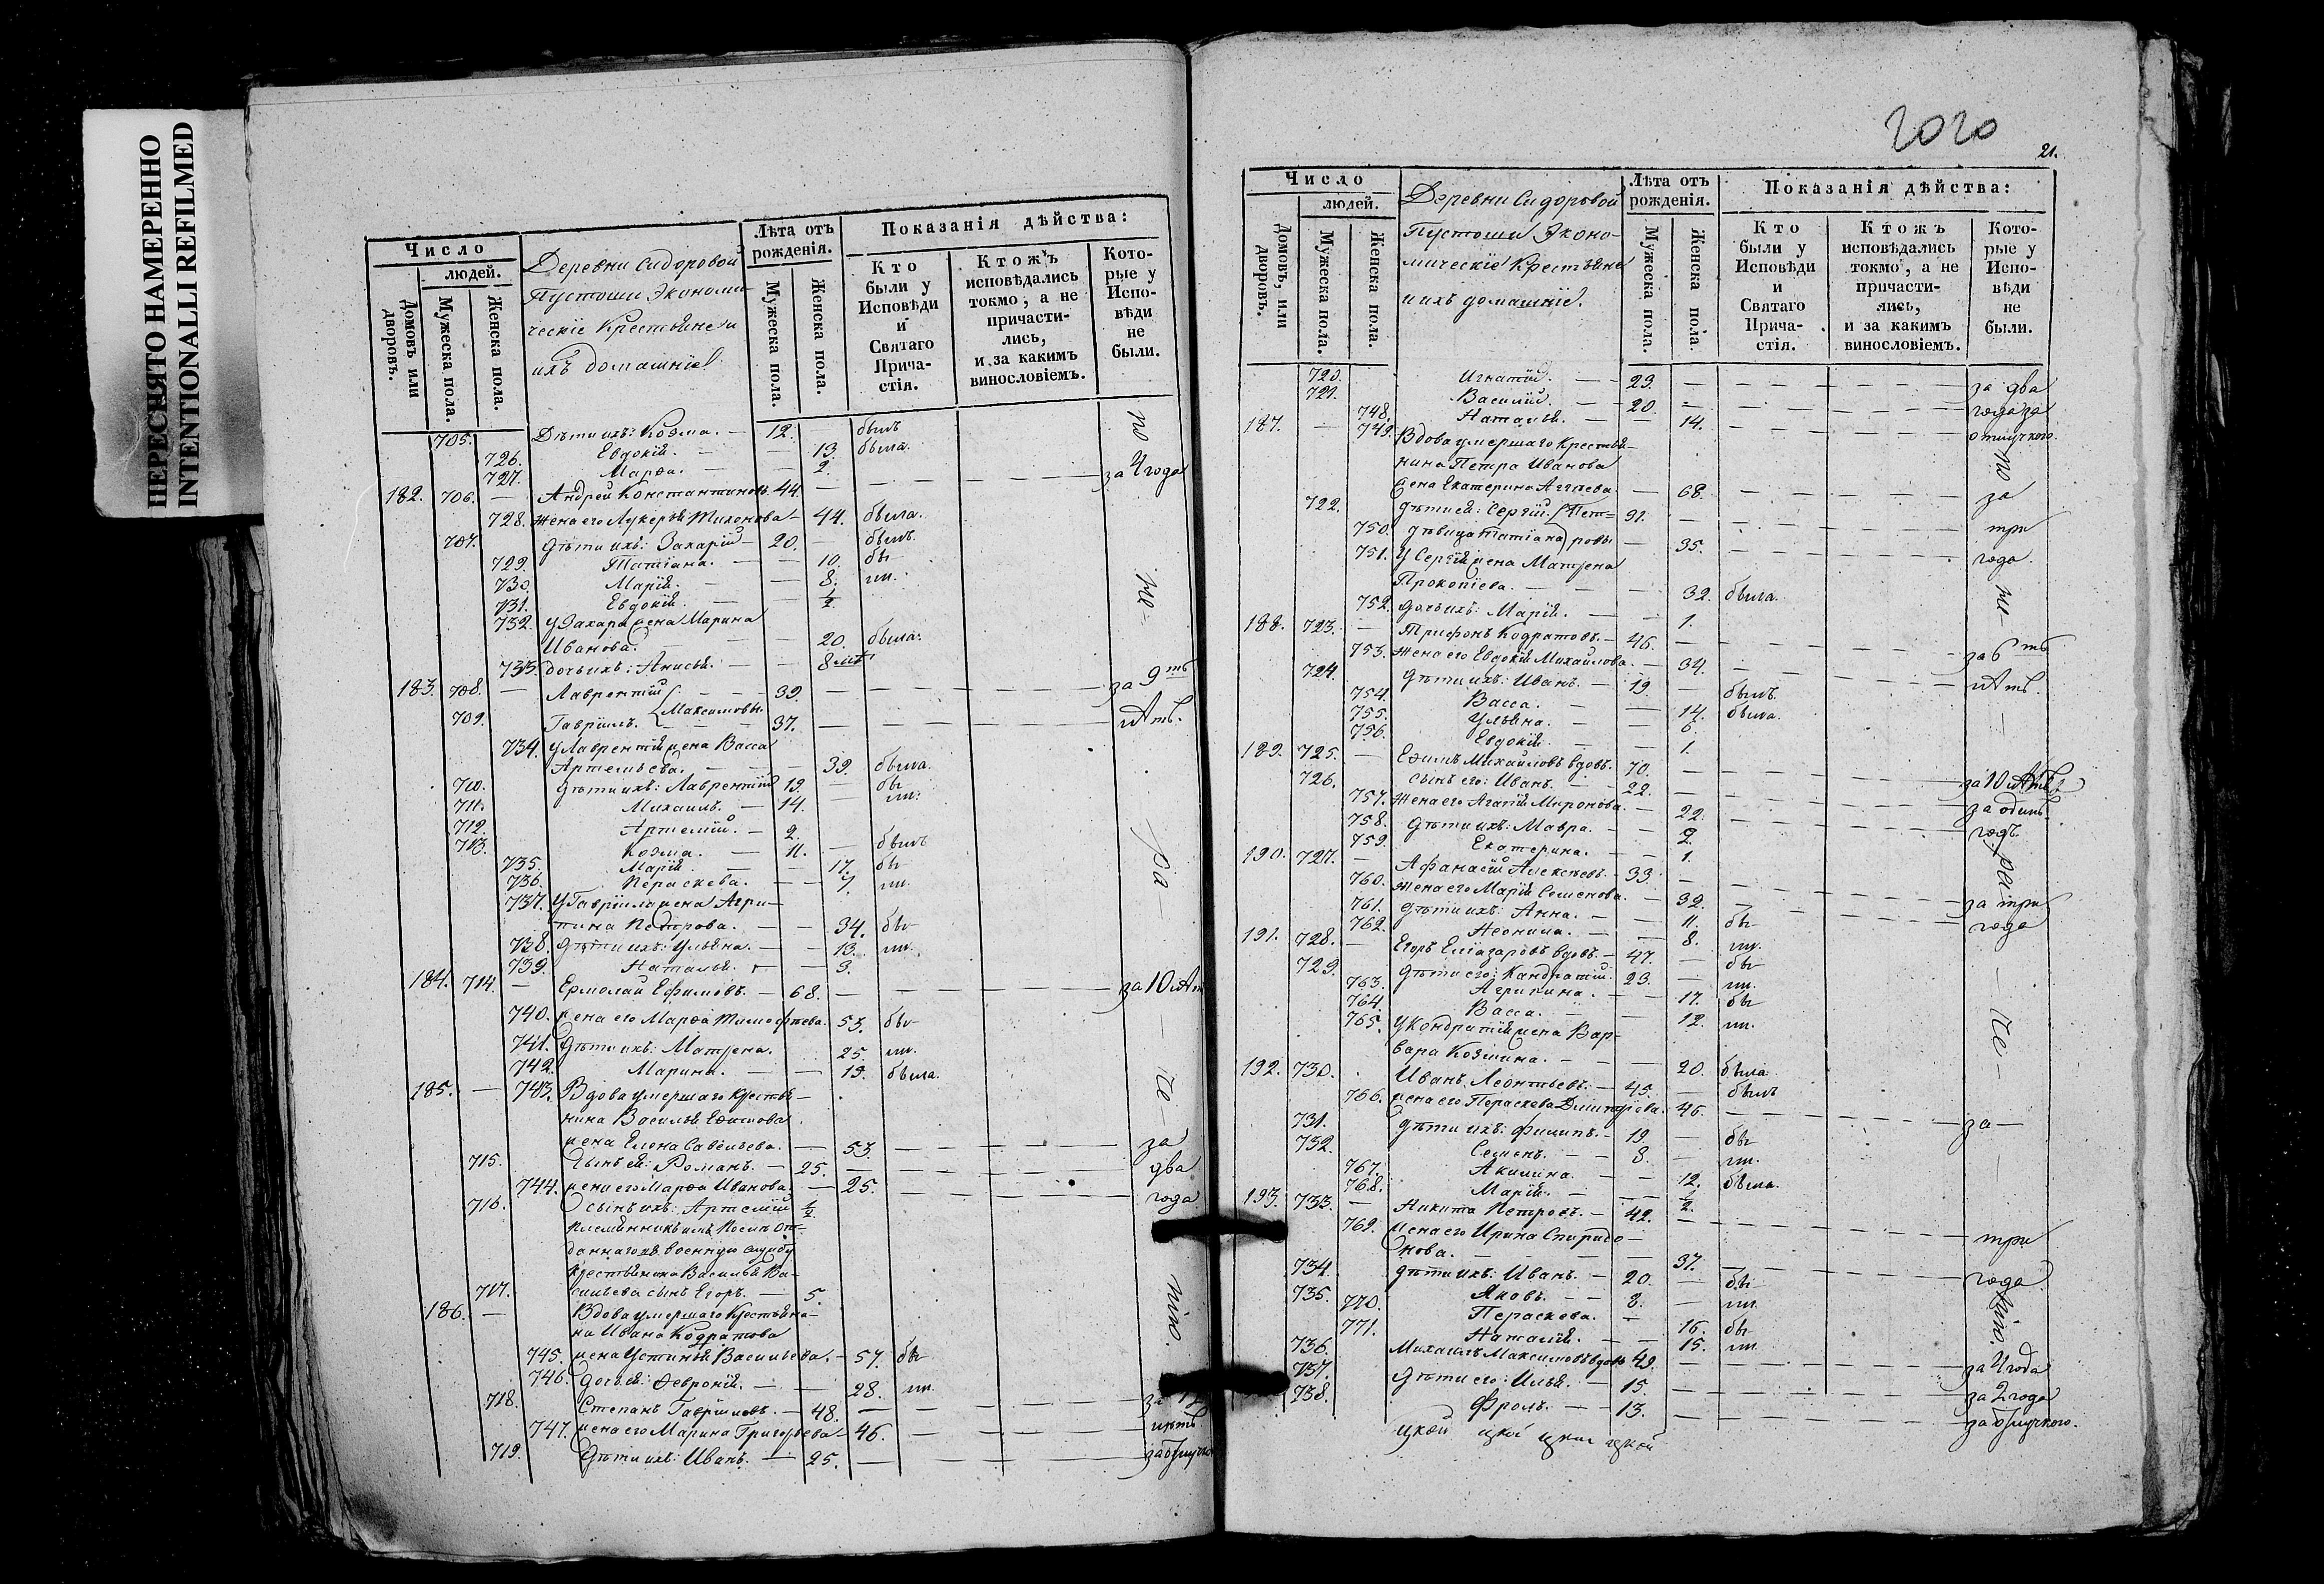 ПЕРЕСНЯТО НАМЕРЕННО
INTENTIONALLI REFILMED
Число
людей.
Домовъ или дворовъ.
Мужеска пола.
Женска пола.
Деревни Сидоровой
Пустоши Экономи-
ческіе Крестьяне и
ихъ домашніе
Лѣта отъ рожденія.
Мужеска пола.
Женска пола.
Показанія дѣйства:
Кто были у Исповѣди и Святаго Прича-стія.
Ктожъ исповѣдались токмо, а не причасти-лись, и за какимъ винословіемъ.
Кото-рые у Испо-вѣди не были.
705. Дѣти ихъ: Козма. — 12. былъ
726. Евдокія. — — 13. была.
727. Марѳа. — — 2.
182. 706. — Андрей Константиновъ. 44. — за 4 года
728. жена его Лукерья Тихонова — 44. была.
707. дѣти ихъ: Захарій — 20. — былъ.
729. Татіана. — — 10. бы
730. Марія. — — 8. ли.
731. Евдокія. — — 1/2
732. У Захара жена Марина
Иванова. — — 20. была.
733. дочь ихъ: Анисья. — — 8
183. 708. — Лаврентій — 39. — за 9ть
Максимовы
709. Гавріилъ. — 37. — лѣтъ.
734. У Лаврентія жена Васса
Артемьева. — — 39. была.
710. дѣти ихъ: Лаврентій 19. — бы
711. Михаилъ. — 14. — ли.
712. Артемій. — 2.
713. Козма. — 11. — былъ
735. Марія. — 17. бы
736. Пераскева. — — 7. ли.
737. У Гавріила жена Агри-
пина Петрова. — — 34. бы
738. дѣти ихъ: Ульяна. — — 13. ли.
739. Наталья. — — 3.
184. 714. — Ермолай Ефимовъ. — 68. — за 10 лѣт
740. жена его Марѳа Тимофѣева. 53. бы
741. Дѣти ихъ: Матрена. 25. ли.
742. Марина. — — 19. была.
185. — 743. Вдова умершаго Крестья-
нина Василья Ефимова
жена Елена Савельева. — 53. — за
715. Сынъ ея: Романъ. — 25. — два
744. жена его Марѳа Иванова. — 25. — года.
716. Сынъ ихъ: Артемій 1/2
племянникъ
даннаго въ военную службу
Крестьянина Василья Ва-
717. сильева сынъ Егоръ. — 5.
186. — Вдова умершаго Крестьяни-
на Ивана Кодратова
745. жена Устинья Васильева. — 57. бы
746. Дочь ея: Февронія. — — 28. ли.
718. Степанъ Гавріиловъ. — 48. — за 12
747. жена его Марина Григорьева — 46. — лѣтъ.
719. Дѣти ихъ: Иванъ. — 25. —
по
ни-
ра
че
нію.
21.
Число
людей.
Домовъ, или дворовъ.
Мужеска пола.
Женска пола.
Деревни Сидоровой
Пустоши Эконо-
мическіе Крестьяне
и ихъ домашніе.
Лѣта отъ рожденія.
Мужеска пола.
Женска пола.
Показанія дѣйства:
Кто были у Исповѣди и Святаго Прича-стія.
Ктожъ исповѣдались токмо, а не причасти-лись, и за какимъ винословіемъ.
Кото-рые у Испо-вѣди не были.
720. Игнатій. — 23. — за два
721. Василій. — 20. — года за
748. Наталья. — — 14. отлучкою.
187. — 749. Вдова умершаго Крестья-
нина Петра Иванова
жена Екатерина Аггеева. — 68. — за
722. дѣти ея: Сергій Пет- 31. — три
750. дѣвица Татіана ровы — 35. — года.
751. У Сергія жена Матрена
Прокопіева. — — 32. была.
752. дочь ихъ: Марія. — — 1.
188. 723. — Трифонъ Кодратовъ. — 46. —
753. жена его Евдокія Михайлова. — 34. — за 6ть
724. дѣти ихъ: Иванъ. — 19. — былъ. лѣтъ.
754. Васса. — — 14. была.
755. Ульяна. — — 6.
756. Евдокія. — — 1.
189. 725. — Ефимъ Михайловъ вдовъ. 70. — за 10 лѣтъ
726. сынъ его: Иванъ. — 22. — за одинъ
757. жена его Агатія Миронова. — 22. — годъ
758. дѣти ихъ: Мавра. — — 2.
759. Екатерина. — — 1.
190. 727. — Афанасій Алексѣевъ. — 33. —
760. жена его Марія Семенова. — 32. — за три
761. дѣти ихъ: Анна. — — 11. бы года
762. Леонила. — — 8. ли.
191. 728. — Егоръ Еліазаровъ вдовъ. — 47. — бы
729. дѣти его: Кандратій. 23. — ли.
763. Агрипина. — — 17. бы
764. Васса. — — 12. ли.
765. У Кондратія жена Вар-
вара Козмина. — — 20. была.
192. 730. Иванъ Леонтьевъ. — 45. — былъ
766. жена его Пераскева Димитріева. 46. — за —
731. дѣти ихъ: Филипъ. — 19. — бы
732. Семенъ. — — 8. — ли.
767. Акилина. — — 12. была.
768. Марія. — — 1/2
193. 733. — Никита Петровъ. — 42. —
769. жена его Ирина Спиридо-
нова. — — 37. — три
734. дѣти ихъ: Иванъ. — 20. — бы года
735. Яковъ. — — 8. — ли.
770. Пераскева. — — 16. бы
771. Наталія. — — 15. ли
736. Михаилъ Максимовъ вдовъ 49. — за 4 года
737. дѣти его: Илья. — 15. — за 2 года
738. Фролъ. — — 13. — за отлучкою.
по
ни-
ра
че-
нію.